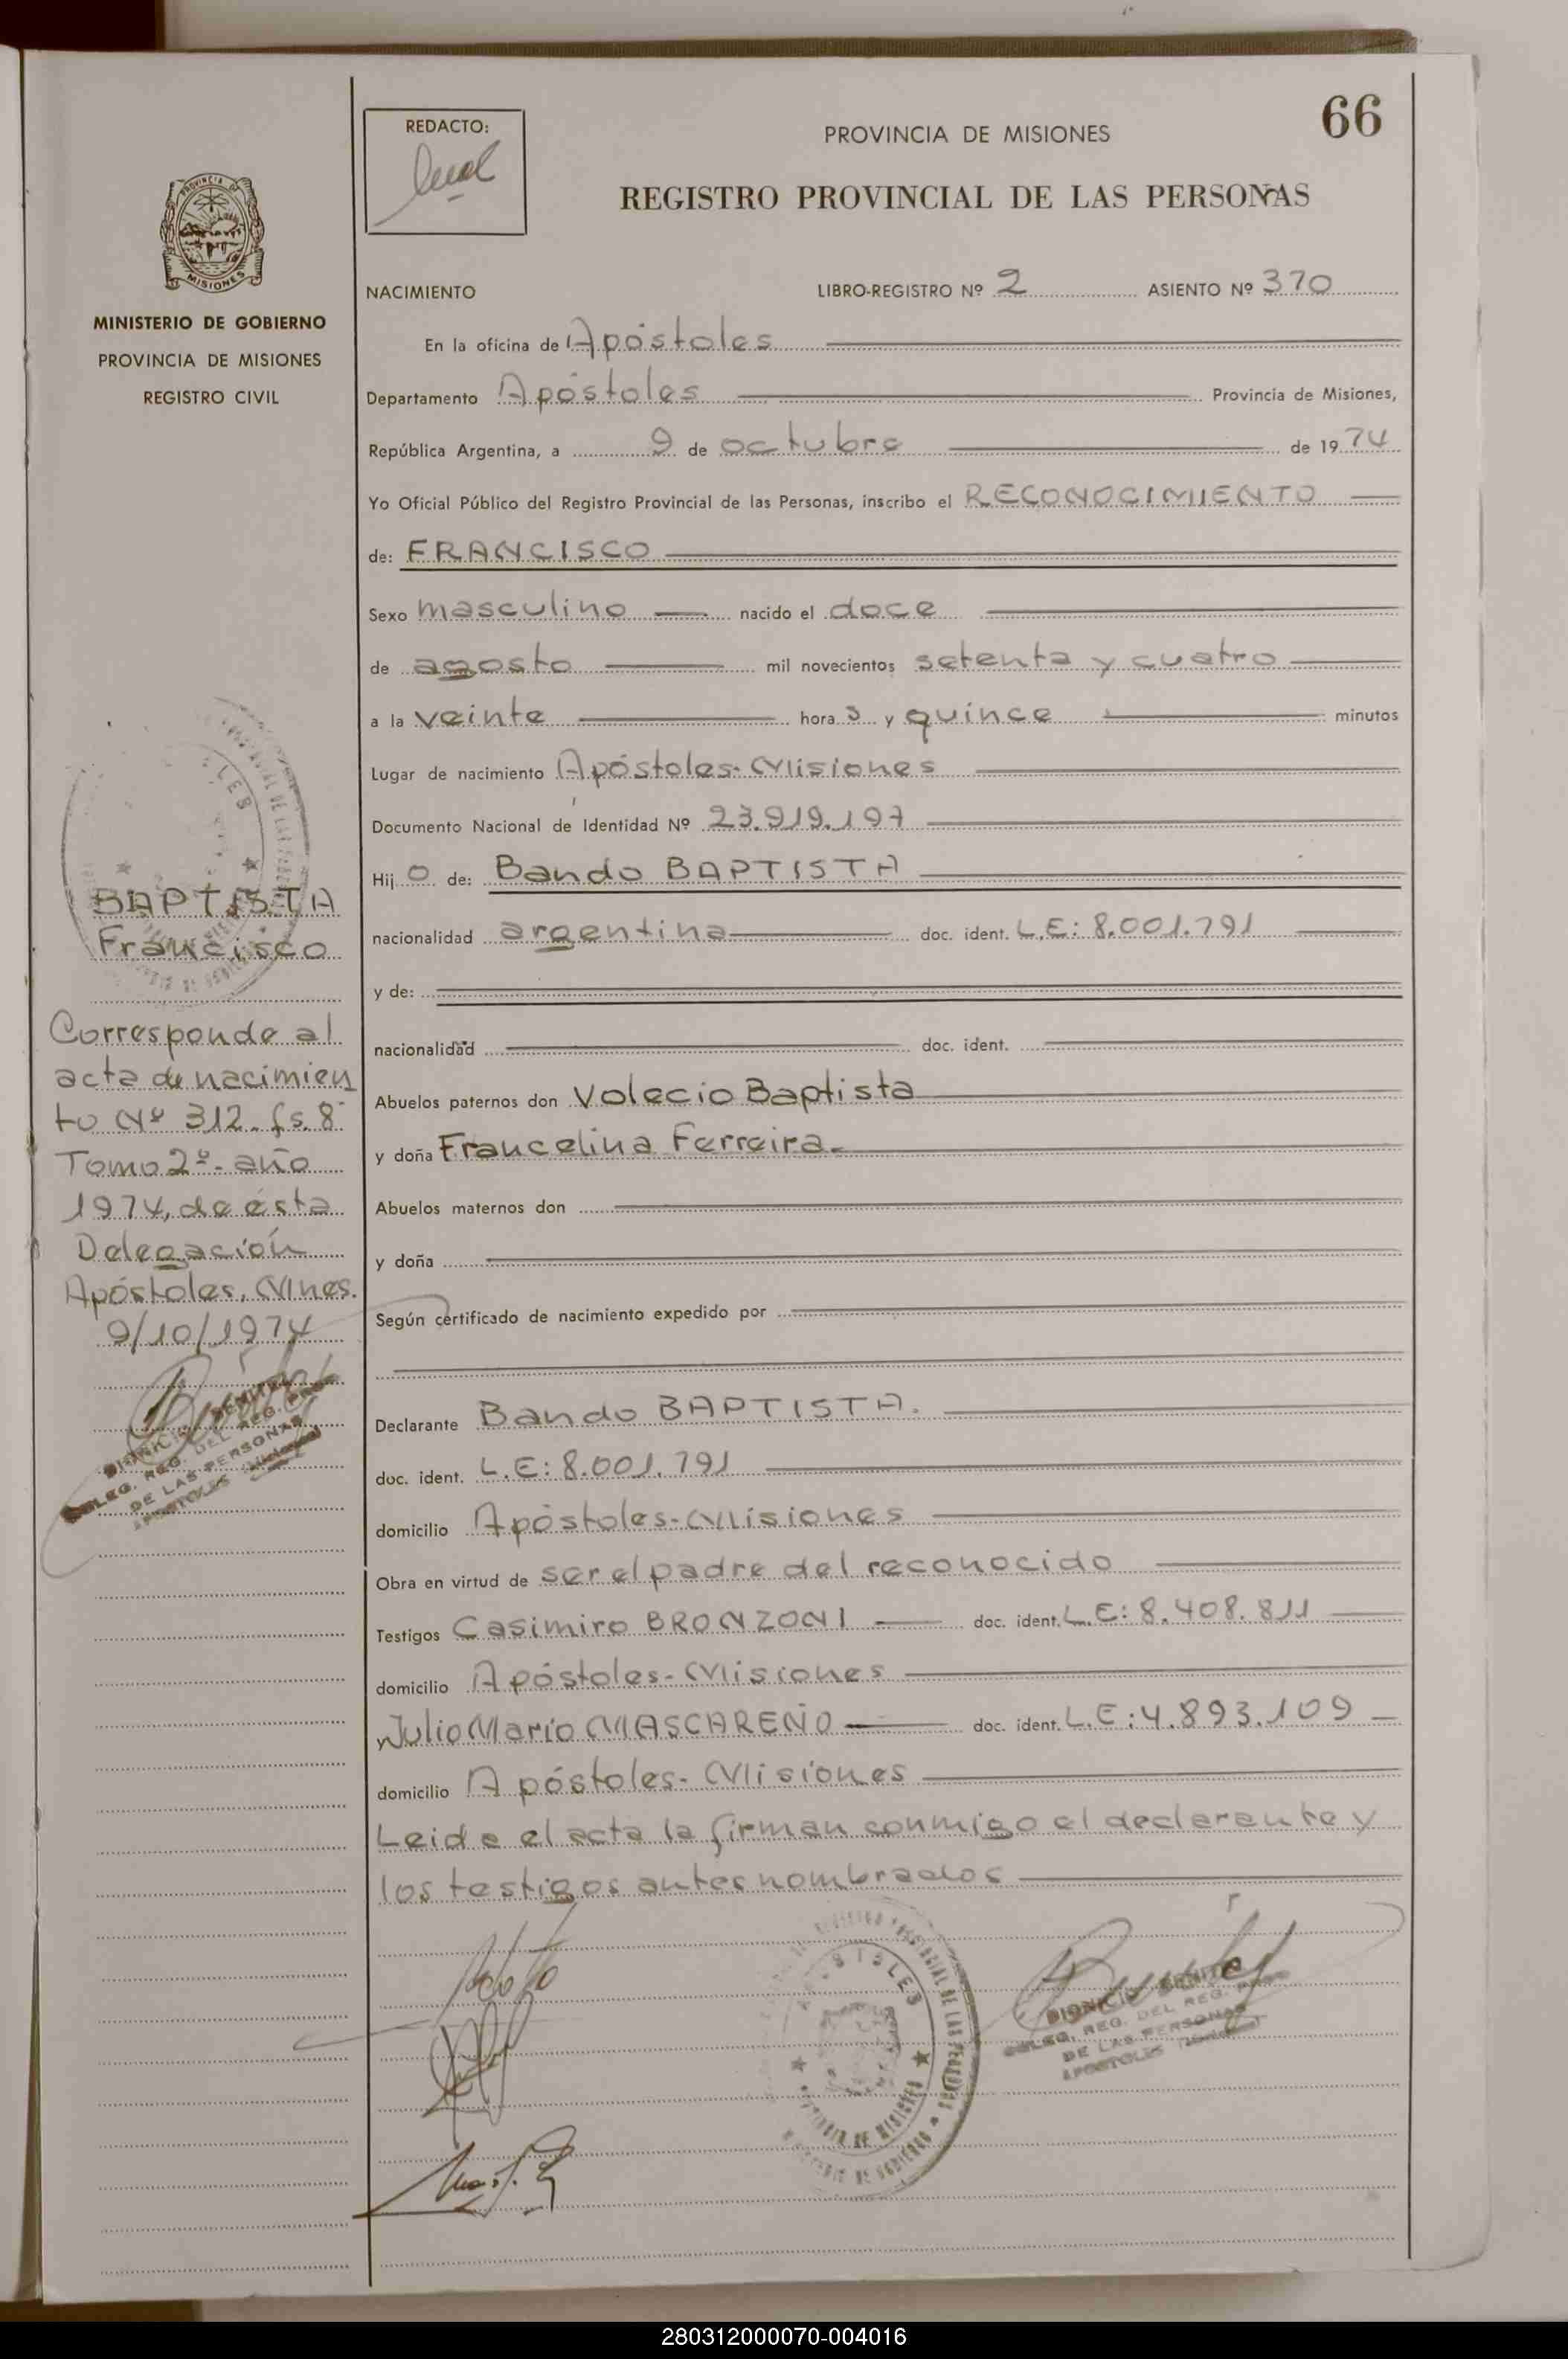 66
REDACTO:
PROVINCIA DE MISIONES
REGISTRO PROVINCIAL DE LAS PERSONAS
PROVINCIA DE
MISIONES
MINISTERIO DE GOBIERNO
PROVINCIA DE MISIONES
REGISTRO CIVIL
NACIMIENTO LIBRO-REGISTRO Nº 2 ASIENTO Nº 370
En la oficina de Apóstoles
Departamento Apóstoles Provincia de Misiones,
República Argentina, a 9 de octubre de 1974
Yo Oficial Público del Registro Provincial de las Personas, inscribo el RECONOCIMIENTO
de: FRANCISCO
Sexo masculino nacido el doce
de agosto mil novecientos setenta y cuatro
a la veinte hora s y quince minutos
Lugar de nacimiento Apóstoles-Misiones
Documento Nacional de Identidad Nº 23.919.197
Hij o de: Bando BAPTISTA
nacionalidad argentina doc. ident. L.E: 8.001.791
y de:
nacionalidad doc. ident.
Abuelos paternos don Volecio Baptista
y doña Francelina Ferreira.
Abuelos maternos don
y doña
Según certificado de nacimiento expedido por
Declarante Bando BAPTISTA.
doc. ident. L.E: 8.001.791
domicilio Apóstoles-Misiones
Obra en virtud de ser el padre del reconocido
Testigos Casimiro BRONZONI doc. ident. L.E: 8.408.811
domicilio Apóstoles-Misiones
y Julio Mario MASCAREÑO doc. ident. L.E: 4.893.109
domicilio Apóstoles-Misiones
Leida el acta la firman conmigo el declarante y
los testigos antes nombrados
BAPTISTA
Francisco
Corresponde al
acta de nacimien
to Nº 312. fs. 8
Tomo 2º- año
1974, de ésta
Delegación
Apóstoles, Mnes.
9/10/1974
DIONICIO BENITEZ
DELEG. REG. DEL REG. PROV.
DE LAS PERSONAS
APOSTOLES
DIONICIO BENITEZ
DELEG. REG. DEL REG. PROV.
DE LAS PERSONAS
APOSTOLES
280312000070-004016